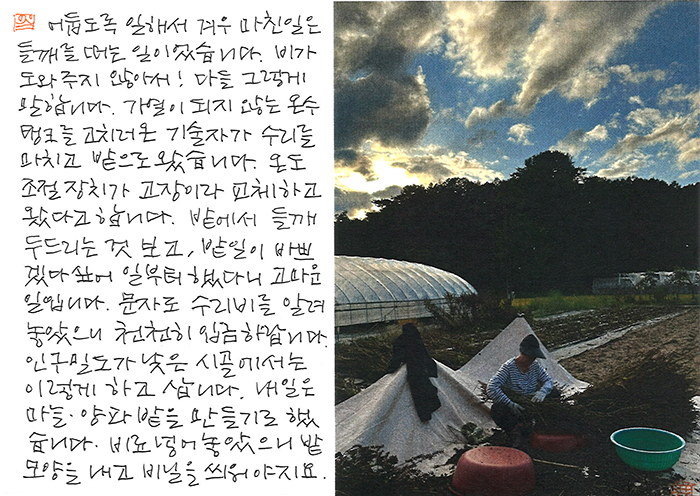 어둡도록 일해서 겨우 마친일은
들깨를 터는 일이었습니다. 비가
도와주지 않아서! 다들 그렇게
말합니다. 가열이 되지 않는 온수
탱크를 고치러온 기술자가 수리를
마치고 밭으로 왔습니다. 온도
조절장치가 고장이라 교체하고
왔다고 합니다. 밭에서 들깨
두드리는 것 보고, 밭일이 바쁘
겠다싶어 일부터 했다니 고마운
일입니다. 문자로 수리비를 알려
놓았으니 천천히 입금하랍니다.
인구밀도가 낮은 시골에서는
이렇게 하고 삽니다. 내일은
마늘·양파 밭을 만들기로 했
습니다. 비료 넣어놓았으니 밭
모양을 내고 비닐을 씌워야지요.